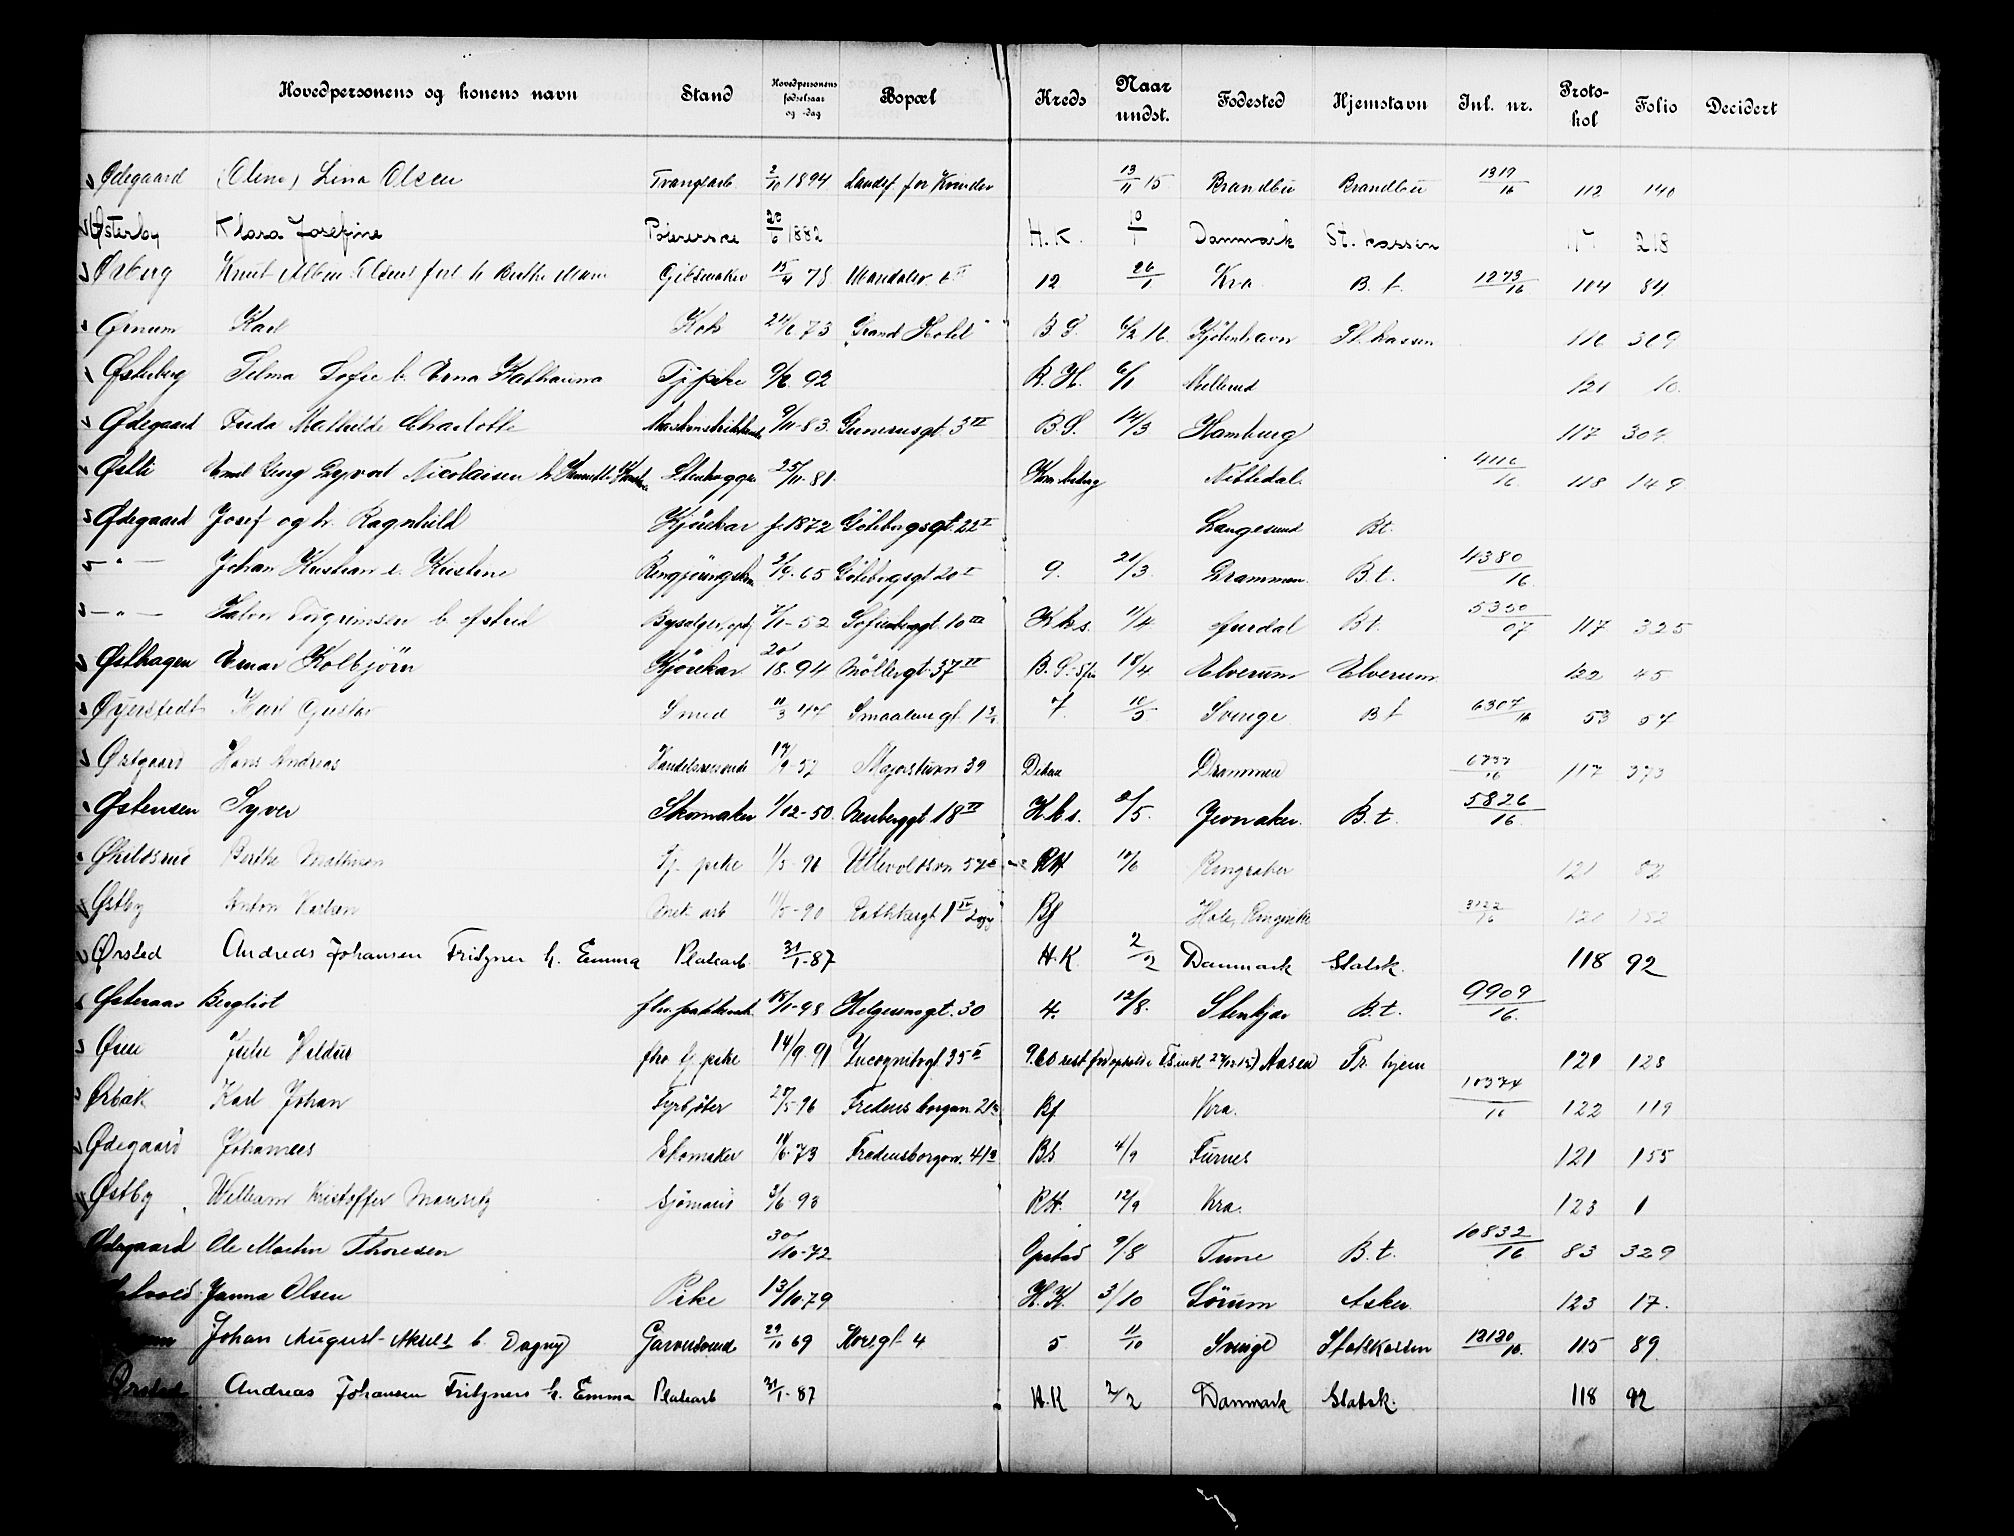 Hovedpersonens og konens navn Stand Hovedpersonens fødselsaar og -dag Bopæl Kreds Naar undst. Fødested Hjemstavn Inl. nr. Protokol Folio Decidert
Ødegaard (Oline) Lina Olsen Tvangsarb. 2/10 1894 Landsf. for Kvinder 13/11 15 Brandbu Brandbu 1317/16 112 140
Østerby Klara Josefine Polererske 20/6 1882 H. K. 10/1 Danmark St. kassen 218
Ørberg Knut Gibsmaker 15/4 78 12 26/1 Kra. B. t. 1273/16 104 84
Ørnum Karl Kok 73 Grand Hotel B S. 6/2 16 Kjøbenhavn St. kassen 116 309
Østerberg Selma Sofie Erna Katharina Tj pike 9/6 92 R. H. 6/1 Mellerud 121 10.
Ødegaard Frida Mathilde Charlotte 9/11-83. Gunerusgt. 3 III B.S. 14/3 Hamburg 117 304
Østli Emil Georg Nicolaisen Stenhugger 25/11-81 Nittedal. 4116/16 118 149
Ødegaard Josef og h. Ragnhild Kjørekar f. 1872 Göteborgsgt. 22 I Langesund Bt.
— " — Johan Kristian h. Kristine 65 Göteborgsgt 20 I 9. 21/3. Drammen. B.t. 4380/16.
— " — Halvor Torgrimsen h. Astrid 7/1-52 Sofienberggt. 10 III Kbs. 11/4 Aurdal Bt. 5330/07 117 325
Østhagen Einar Kolbjörn Kjörekar 20/18. 94 Möllergt. 37 IV B. S. 18/4 Elverum Elverum 122 45
Øyerstedt Karl Gustav Smed 11/3 47 Smaalensgt. 7. 10/5 Sverige B t 6307/16 53 07
Østgaard Hans Andreas Handelsreisende 17/9-57 Majorstuvn 39 Drammen 6737/16 117 373
Østensen Syver Skomaker 1/12-50. 18 IV Kbs. 5. Jevnaker. B.t. 5826/16.
Berthe Mathisen Tj. pike 1/5-91 Ullevoldsvn 57 RH 10/6 Ringsaker 121 82
Østby Anton Karlsen 11/5-90 Bf Hole, Ringerike 3122/16 121 152
Ørsted Andreas Johansen Fritzner h. Emma Platearb. 31/1-87 H.K 2/2 Danmark Statsk. 118 92
Østeraas Bergliot 18/1-98 Helgesensgt. 30 4. 12/8. Stenkjær B.t. 9909/16.
Øien Julie Hildur fhv. tj. pike 14/9. 91 Incognitogt 35 II Aasen Tr. hjem 121 128
Ørbæk Karl Johan Fyrbøter 28/5-96 Fredensborgvn 21 Bf Kra. 10374/16 122 119
Ødegaard Johannes Skomaker 73 Fredensborgvn. 41 BS 4/9 Furnes 121 155
Østby William Kristoffer Mauritz Sjømand 3/6. 93 RH. 12/9 Kra. 123 1
Ødegaard Ole Martin Thoresen 30/10-72 9/8 Tune B.t. 10832/16 83 329
Janna Olsen Pike 13/10.79 H.K. 3/10 Sörum Asker 123 17.
Johan August h. Dagny Garversvend 29/10 69 Storegt 4 5. 11/10 Sverige Statskassen 12120/16. 115 89.
Ørsted Andreas Johansen Fritzners h. Emma Platearb 31/1-87 H.K 2/2 Danmark Statsk. 118 92